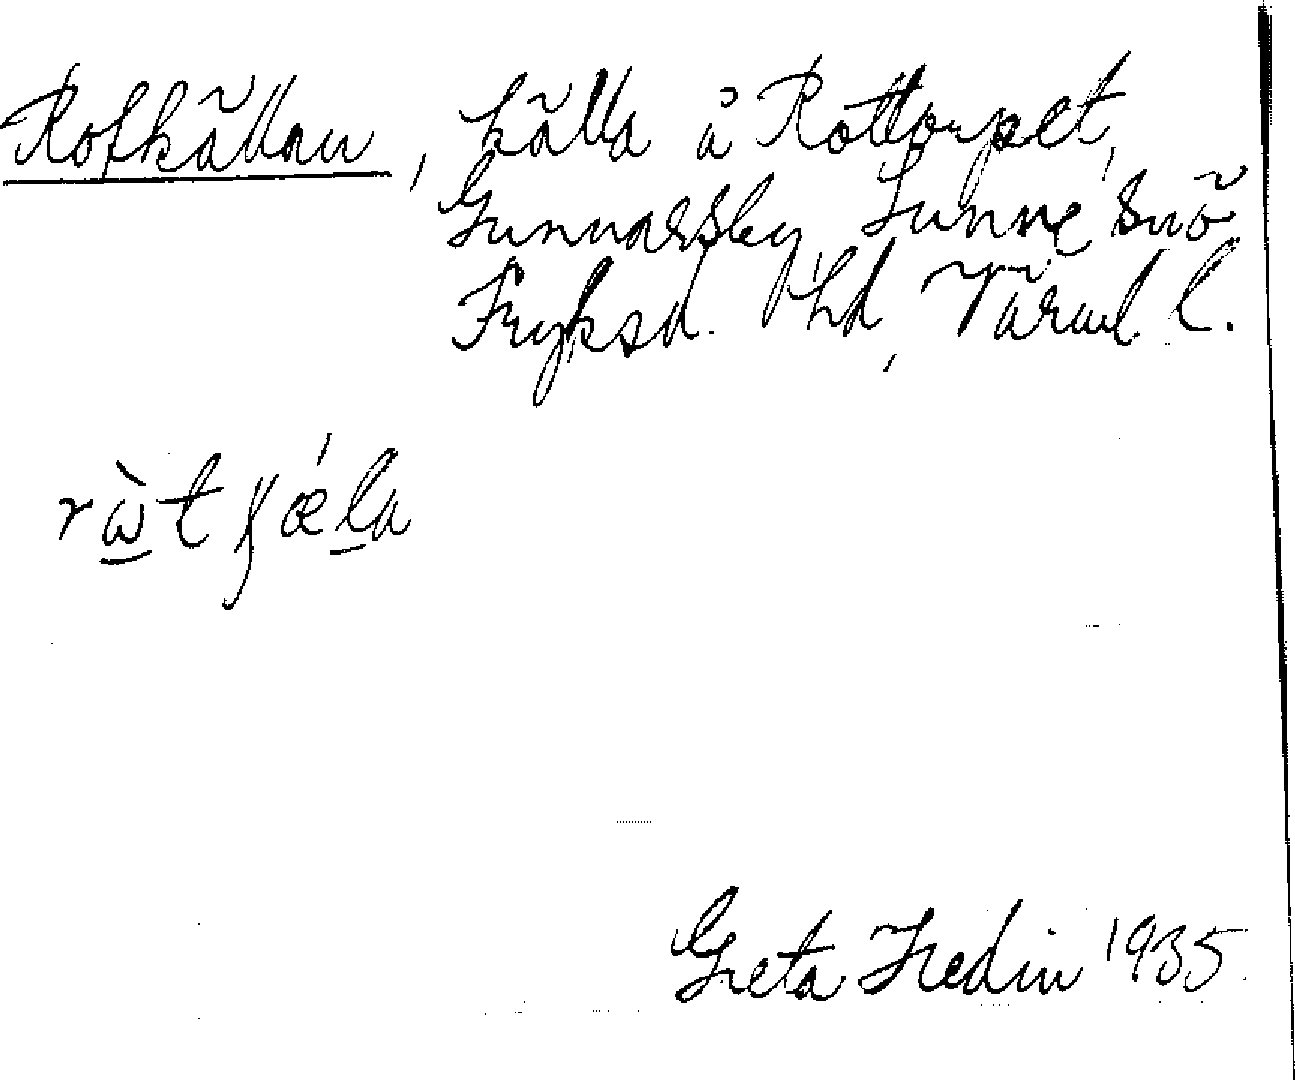 Rotkällan, källa å Rottorpet,
Gunnarsby Sunne sn
Fryksd. hd, Värml. l.
Greta Hedin 1935.